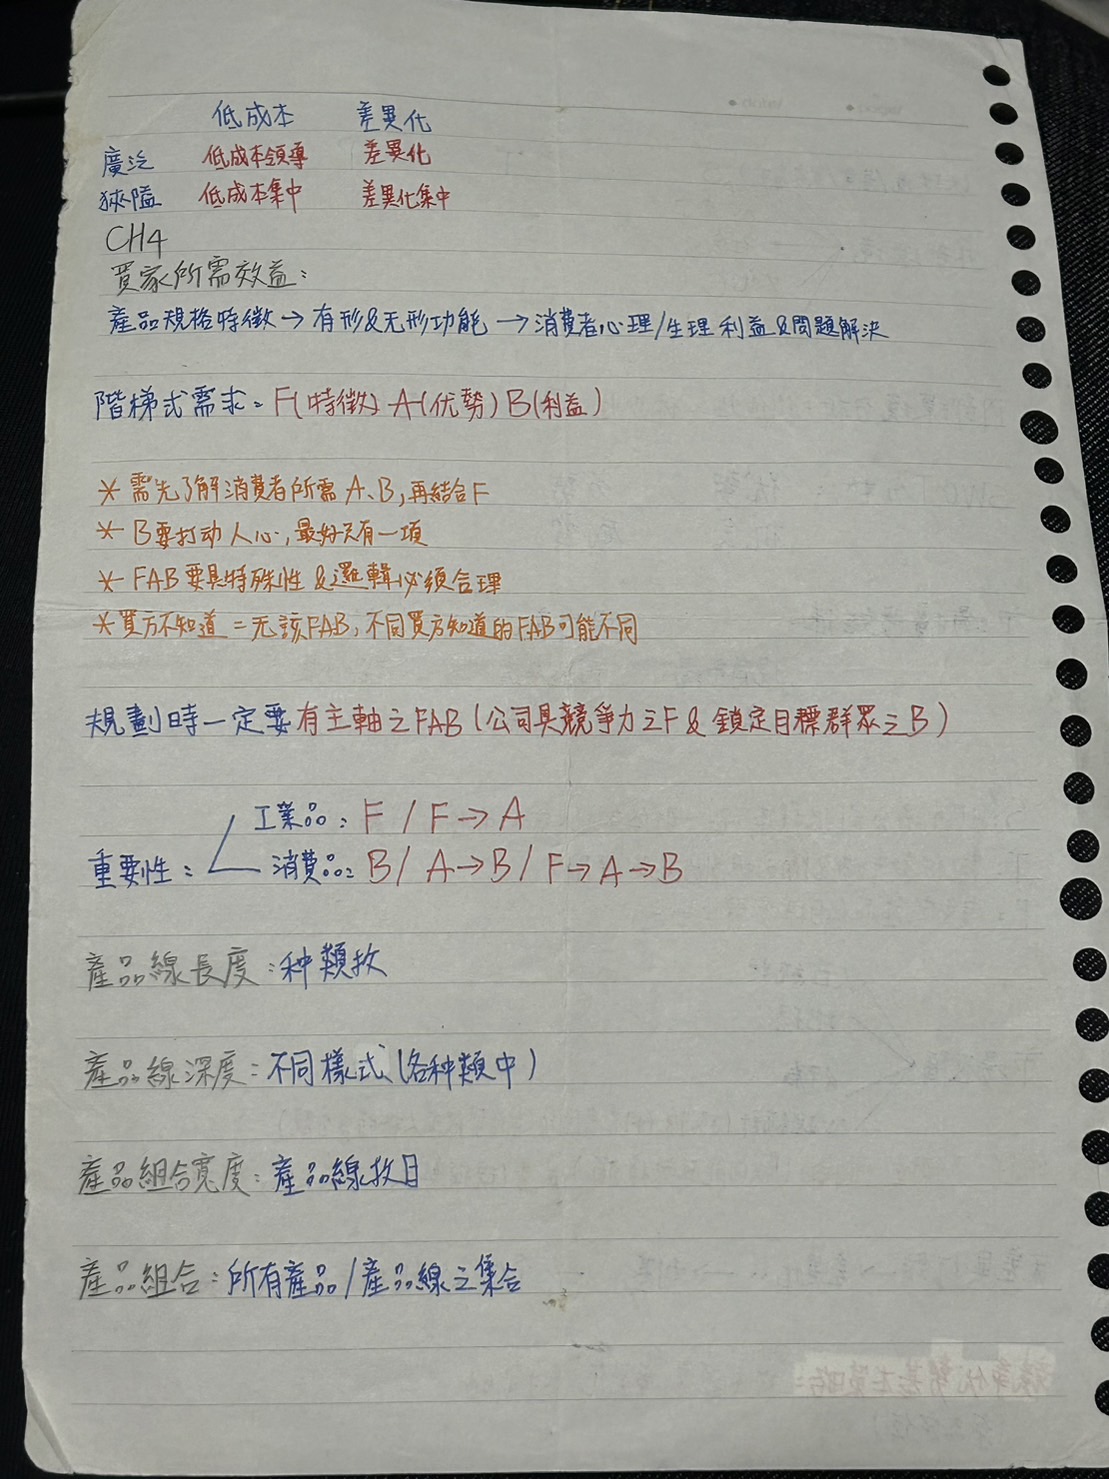 低成本 差異化
廣泛 低成本領導 差異化
狹隘 低成本集中 差異化集中
CH4
買家所需效益：
產品規格特徵→有形&无形功能→消費者心理/生理利益&問題解決
階梯式需求：F(特徵) A(优勢) B(利益)
* 需先了解消費者所需A、B,再結合F
* B要打动人心,最好只有一項
* FAB要具特殊性&邏輯必須合理
* 買方不知道=无該FAB,不同買方知道的FAB可能不同
規劃時一定要有主軸之FAB(公司具競爭力之F & 鎖定目標群眾之B)
工業品：F / F→A
重要性：
消費品：B / A→B / F→A→B
產品線長度：种類数
產品線深度：不同樣式(各种類中)
產品組合寬度：產品線数目
產品組合：所有產品/產品線之集合